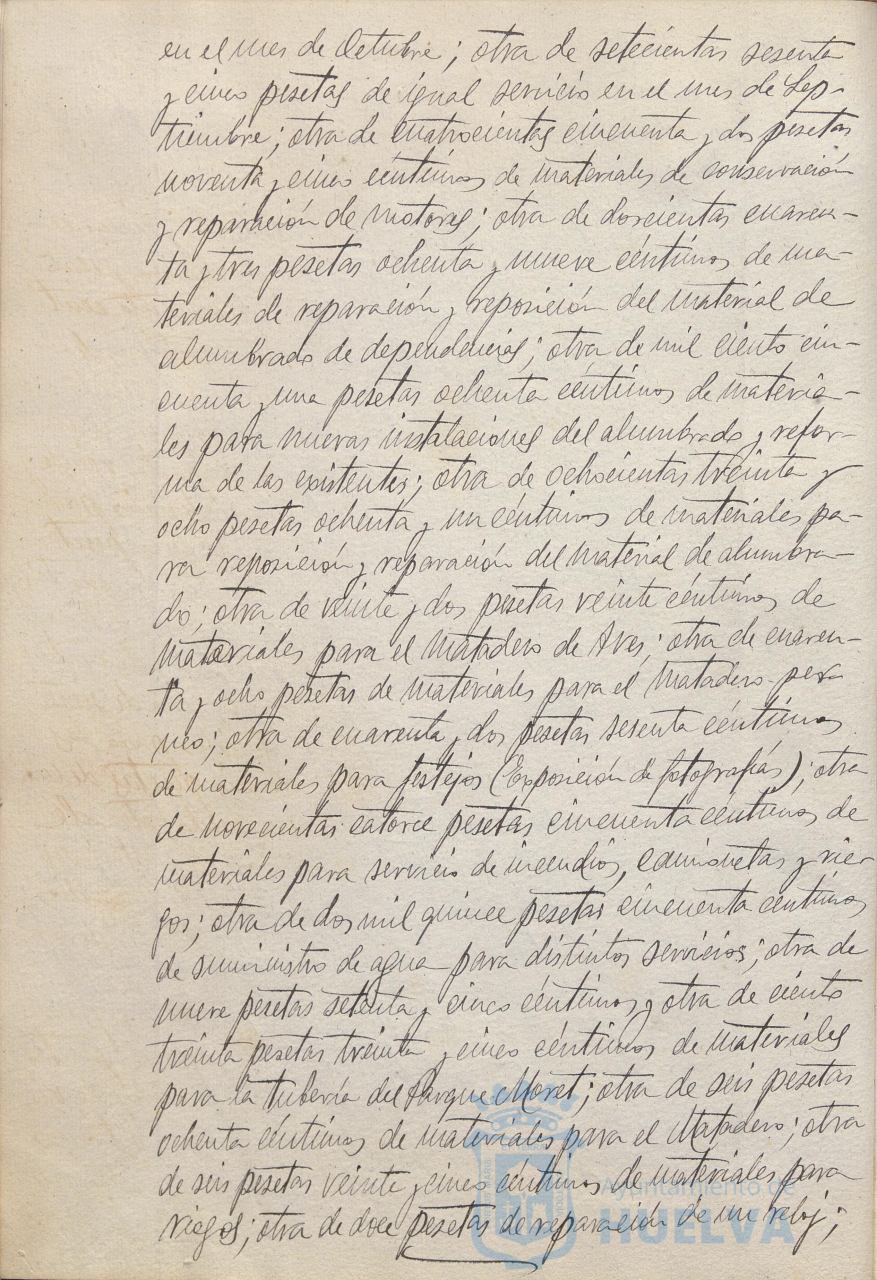 en el mes de Octubre; otra de setecientas sesenta
y cinco pesetas de igual servicio en el mes de Sep-
tiembre; otra de cuatrocientas cincuenta y dos pesetas
noventa y cinco céntimos de materiales de conservación
y reparación de motores; otra de doscientas cuaren-
ta y tres pesetas ochenta y nueve céntimos de ma-
teriales de reparación y reposición del material de
alumbrado de dependencias; otra de mil ciento cin-
cuenta y una pesetas ochenta céntimos de materia-
les para nuevas instalaciones del alumbrado y refor-
ma de las existentes; otra de ochocientas treinta y
ocho pesetas ochenta y un céntimos de materiales pa-
ra reposición y reparación del material de alumbra-
do; otra de veinte y dos pesetas veinte céntimos de
materiales para el matadero de Aves; otra de cuaren-
ta y ocho pesetas de materiales para el matadero
nes; otra de cuarenta y dos pesetas sesenta céntimos
de materiales para festejos (Exposición de fotografías); otra
de novecientas catorce pesetas cincuenta céntimos de
materiales para servicio de incendios, camionetas y rie-
gos; otra de dos mil quince pesetas cincuenta céntimos
de suministro de agua para distintos servicios; otra de
nueve pesetas setenta y cinco céntimos y otra de ciento
treinta pesetas treinta y cinco céntimos de materiales
para la tubería del Parque Moret; otra de seis pesetas
ochenta céntimos de materiales para el Matadero; otra
de seis pesetas veinte y cinco céntimos de materiales para
riegos; otra de doce pesetas de reparación de un reloj;
Ayuntamiento de
HUELVA